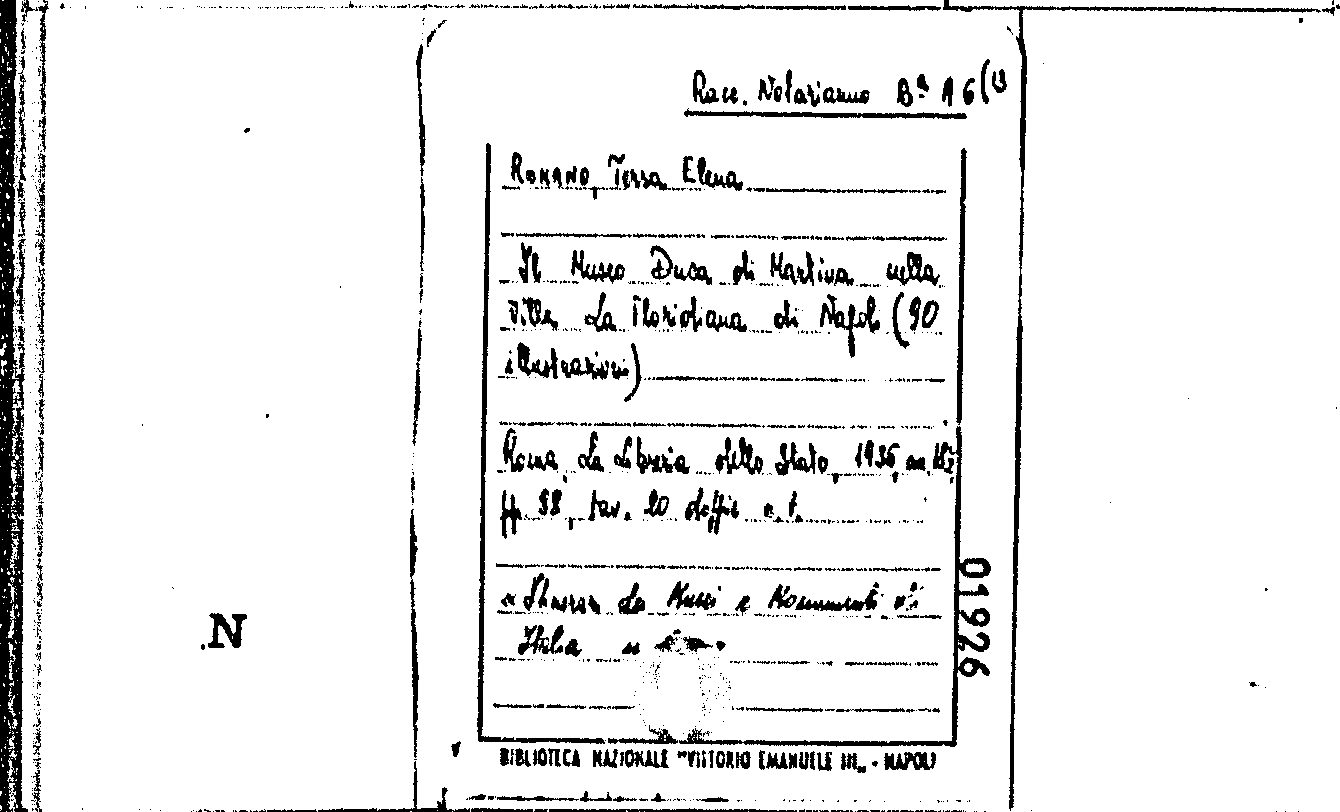 Racc. Notarianno Bª A 6(13
ROMANO, Tersa Elena
Il Museo Duca di Martina nella
villa La Floridiana di Napoli (90
illustrazioni)
Roma, La Libreria dello Stato, 1936, an.
pp. 98, tav. 20 doppie e. t.
« Itinerari dei Musei e Monumenti d'
Italia »
01926
N
BIBLIOTECA NAZIONALE "VITTORIO EMANUELE III„ - NAPOLI